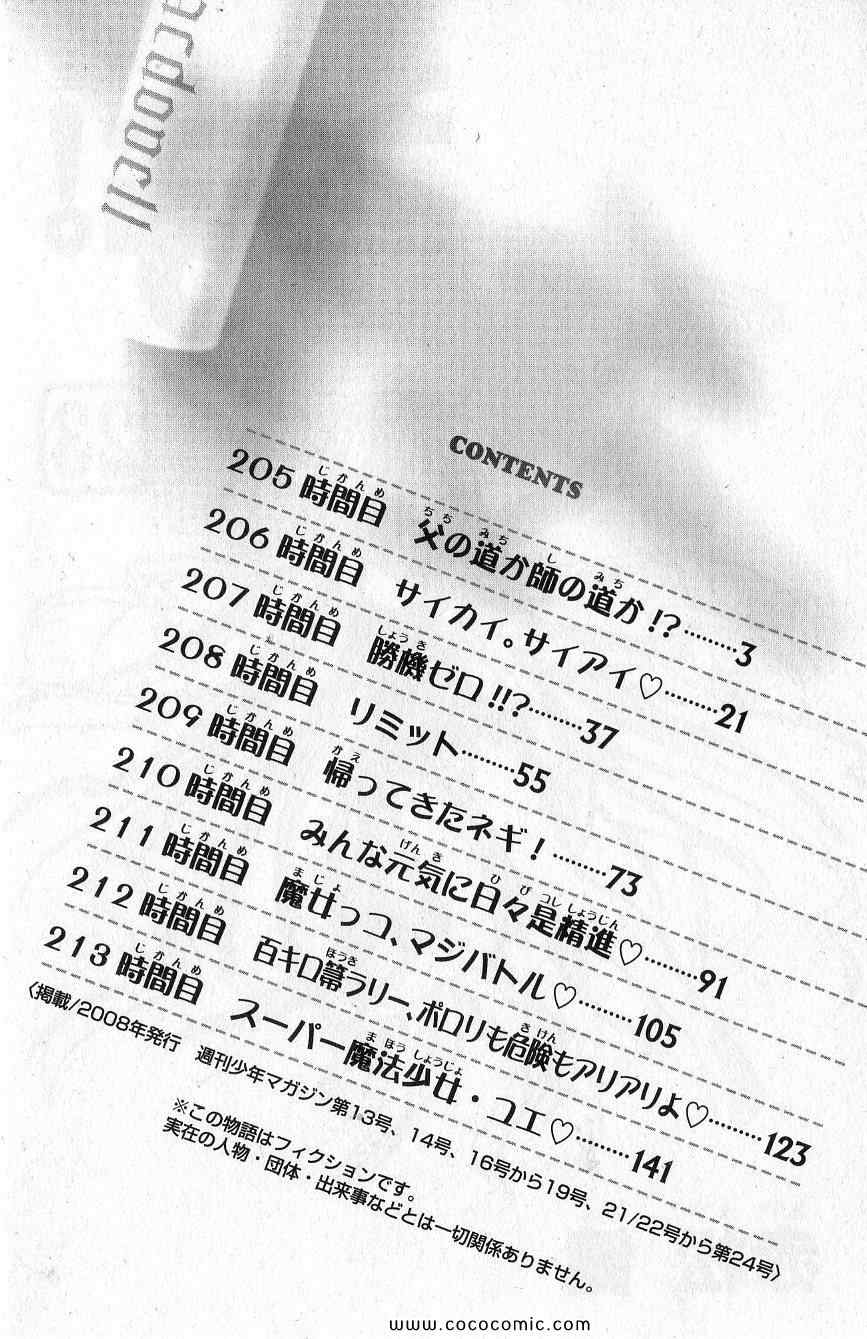 ardonell
CONTENTS
205時間目 父の道か師の道か!?………3
206時間目 サイカイ。サイアイ♡………21
207時間目 勝機ゼロ!!?………37
208時間目 リミット………55
209時間目 帰ってきたネギ!………73
210時間目 みんな元気に日々是精進♡………91
211時間目 魔女っコ、マジバトル♡………105
212時間目 百キロ箒ラリー、ポロリも危険もアリアリよ♡………123
213時間目 スーパー魔法少女・ユエ♡………141
〈掲載/2008年発行 週刊少年マガジン第13号、14号、16号から19号、21/22号から第24号〉
※この物語はフィクションです。
実在の人物・団体・出来事などとは一切関係ありません。
www.cococomic.com